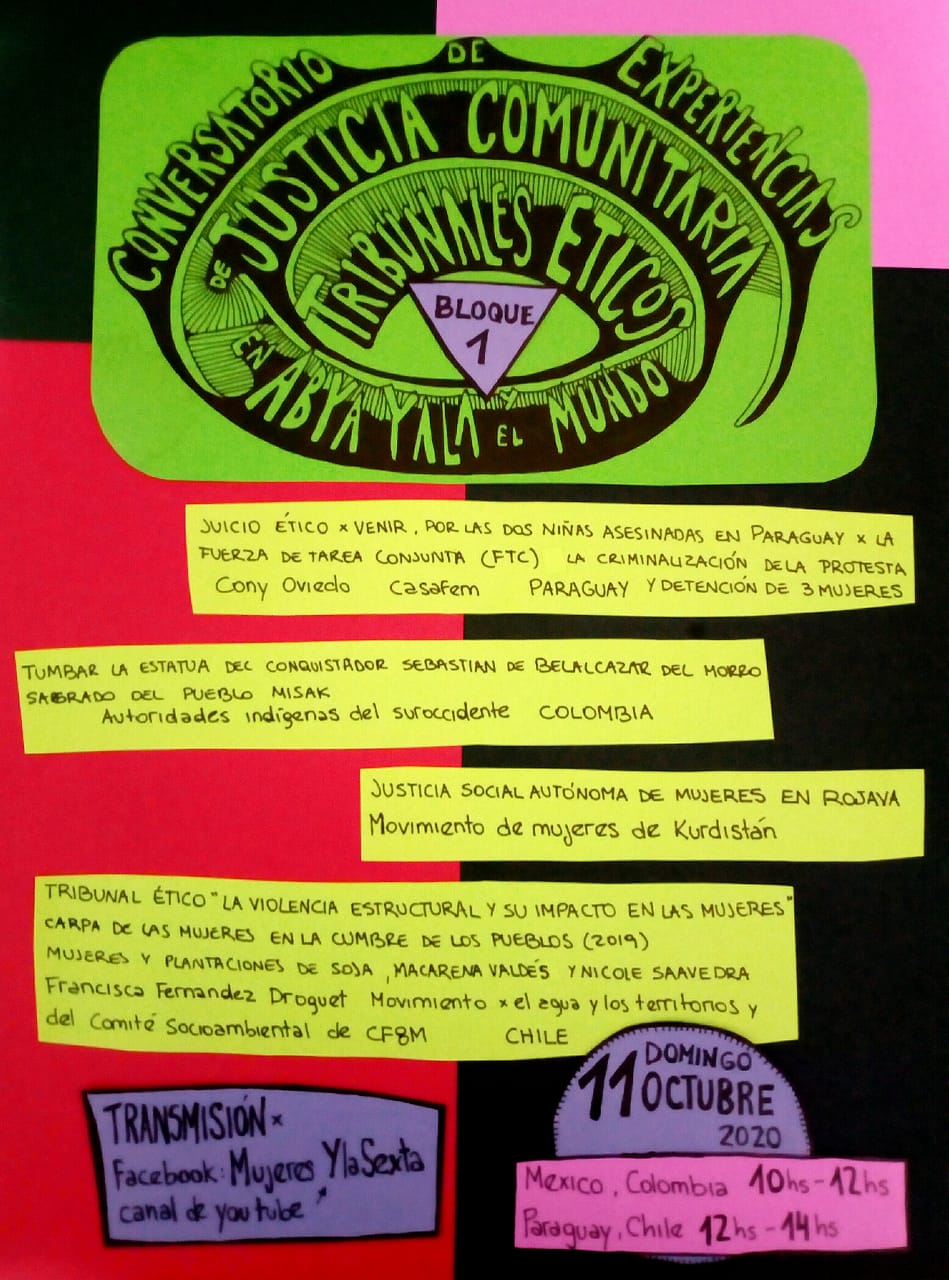 CONVERSATORIO DE EXPERIENCIAS
DE JUSTICIA COMUNITARIA
TRIBUNALES ETICOS
EN ABYA YALA Y EL MUNDO
BLOQUE
1
JUICIO ÉTICO x VENIR, POR LAS DOS NIÑAS ASESINADAS EN PARAGUAY x LA
FUERZA DE TAREA CONJUNTA (FTC) LA CRIMINALIZACIÓN DE LA PROTESTA
Cony Oviedo Casafem PARAGUAY Y DETENCIÓN DE 3 MUJERES
TUMBAR LA ESTATUA DEL CONQUISTADOR SEBASTIAN DE BELALCAZAR DEL MORRO
SAGRADO DEL PUEBLO MISAK
Autoridades indígenas del suroccidente COLOMBIA
JUSTICIA SOCIAL AUTÓNOMA DE MUJERES EN ROJAVA
Movimiento de mujeres de Kurdistán
TRIBUNAL ÉTICO "LA VIOLENCIA ESTRUCTURAL Y SU IMPACTO EN LAS MUJERES"
CARPA DE LAS MUJERES EN LA CUMBRE DE LOS PUEBLOS (2019)
MUJERES Y PLANTACIONES DE SOJA, MACARENA VALDÉS Y NICOLE SAAVEDRA
Francisca Fernandez Droguet Movimiento x el agua y los territorios y
del Comité Socioambiental de CF8M CHILE
TRANSMISIÓN x
Facebook: Mujeres YlaSexta
canal de youtube
DOMINGO
11 OCTUBRE
2020
Mexico, Colombia 10hs - 12hs
Paraguay, Chile 12hs - 14hs